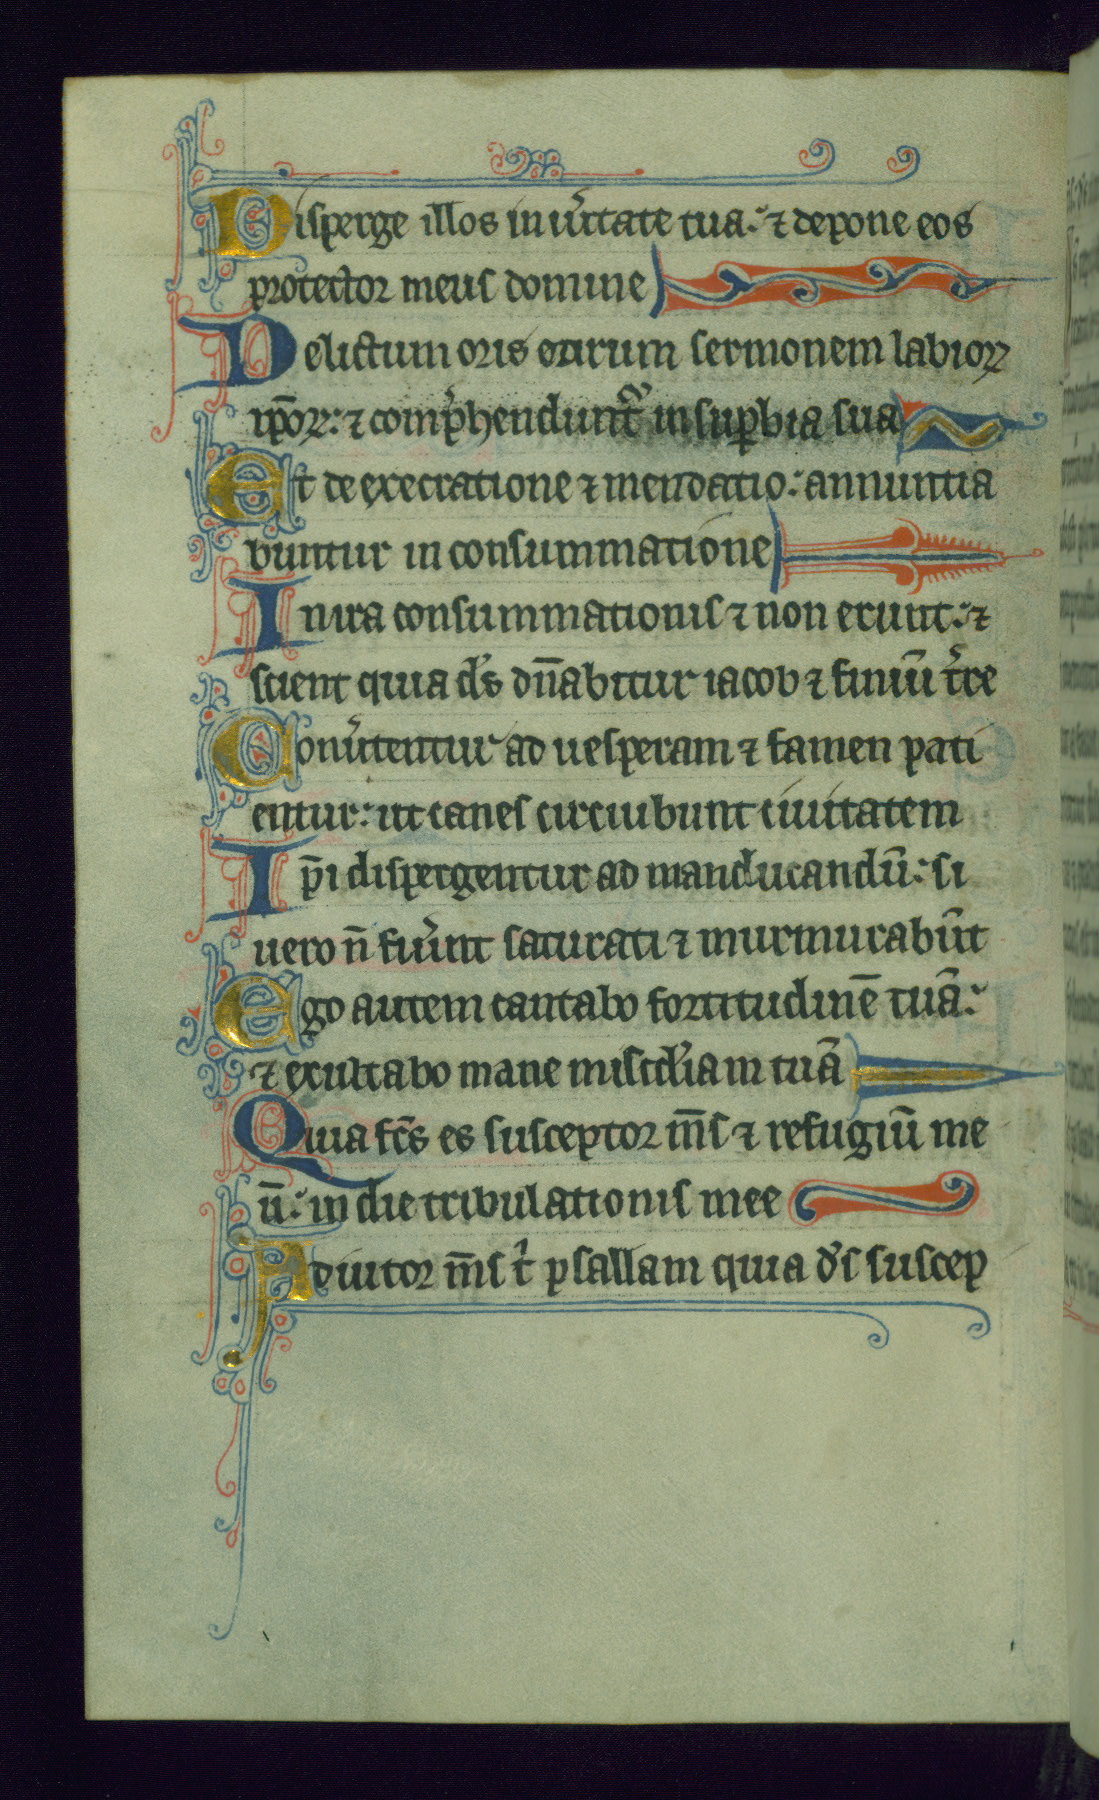 Disperge illos in ũtate tua: ⁊ depone eos
protector meus domine
Delictum oris eorum sermonem labioꝝ
ip̃oꝝ: ⁊ comp̃hendunt᷑ in suꝑbia sua
Est de execratione ⁊ mendatio: annuntia
buntur in consummatione
In ira consummationis ⁊ non erunt: ⁊
scient quia d̾s dñabitur iacob ⁊ finiũ t̾re
Conũtentur ad uesperam ⁊ famen pati
entur: ut canes circuibunt ciuitatem
Ip̃i dispergentur ad manducandũ: si
uero ñ fũint saturati ⁊ murmurabũt
Ego autem cantabo fortitudinẽ tuã:
⁊ exultabo mane misc̾diam tuã
Quia fc̃s es susceptor m̃s ⁊ refugiũ me
ũ: in die tribulationis mee
Adiutor m̃s t̾ psallam quia d̾s suscep